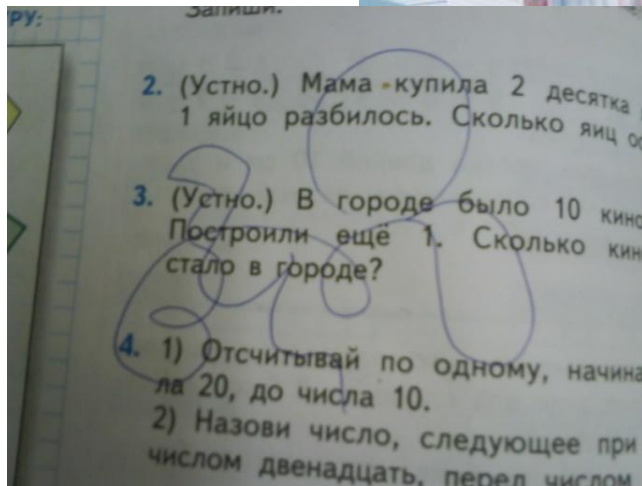 РУ:
Запиши.
2. (Устно.) Мама купила 2 десятка
1 яйцо разбилось. Сколько яиц
3. (Устно.) В городе было 10 кино
Построили ещё 1. Сколько кин
стало в городе?
4. 1) Отсчитывай по одному, начина
ла 20, до числа 10.
2) Назови число, следующее при
числом двенадцать, перед числом